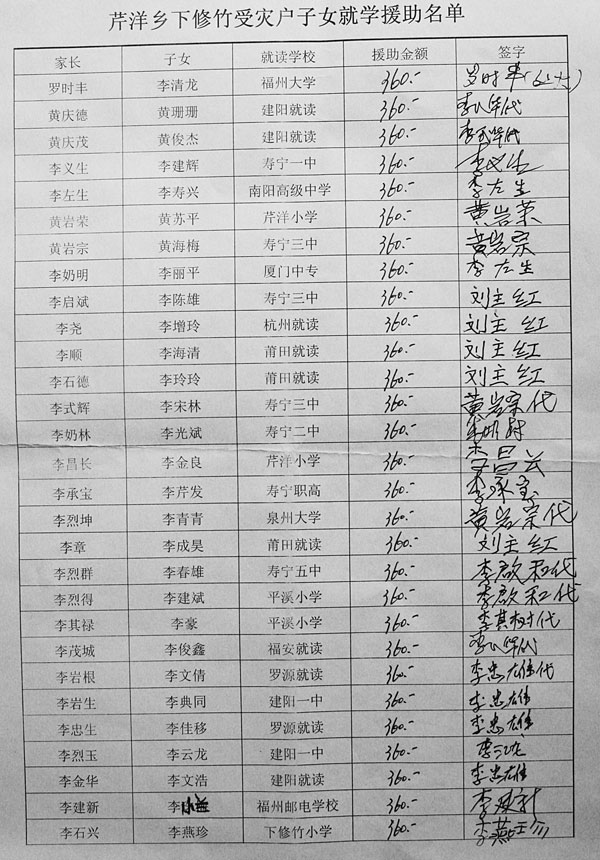 芹洋乡下修竹受灾户子女就学援助名单
家长 子女 就读学校 援助金额 签字
罗时丰 李清龙 福州大学 360.-
黄庆德 黄珊珊 建阳就读 360.-
黄庆茂 黄俊杰 建阳就读 360.-
李义生 李建辉 寿宁一中 360.- 李义生
李左生 李寿兴 南阳高级中学 360.- 李左生
黄岩荣 黄苏平 芹洋小学 360.- 黄岩荣
黄岩宗 黄海梅 寿宁三中 360.- 黄岩宗
李奶明 李丽平 厦门中专 360.- 李左生
李启斌 李陈雄 寿宁三中 360.- 刘主红
李尧 李增玲 杭州就读 360.- 刘主红
李顺 李海清 莆田就读 360.- 刘主红
李石德 李玲玲 莆田就读 360.- 刘主红
李式辉 李宋林 寿宁三中 360.- 黄岩宗代
李奶林 李光斌 寿宁二中 360.-
李昌长 李金良 芹洋小学 360.-
李承宝 李芹发 寿宁职高 360.- 李承宝
李烈坤 李青青 泉州大学 360.- 黄岩宗代
李章 李成昊 莆田就读 360.- 刘主红
李烈群 李春雄 寿宁五中 360.-
李烈得 李建斌 平溪小学 360.-
李其禄 李豪 平溪小学 360.- 李其树代
李茂城 李俊鑫 福安就读 360.-
李岩根 李文倩 罗源就读 360.- 李忠雄代
李岩生 李典同 建阳一中 360.- 李忠雄
李忠生 李佳移 罗源就读 360.- 李忠雄
李烈玉 李云龙 建阳一中 360.- 李云龙
李金华 李文浩 建阳就读 360.- 李忠雄
李建新 李 福州邮电学校 360.- 李建新
李石兴 李燕珍 下修竹小学 360.- 李燕珍